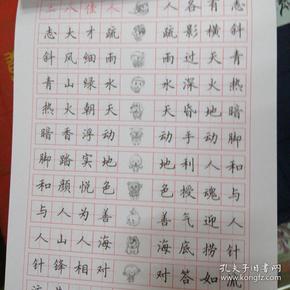 人佳人 人各有志
志大才疏 疏影横斜
斜风细雨 雨过天青
青山绿水 水深火热
热火朝天 天昏地暗
暗香浮动 动手动脚
脚踏实地 地利人和
和颜悦色 色授魂与
与人为善 善气迎人
人山人海 海底捞针
针锋相对 对答如流
孔夫子旧书网